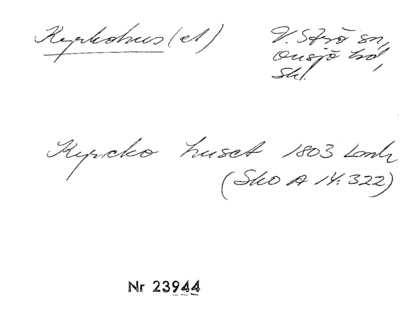 Kyrkohus(et)
V. Strö sn,
Onsjö hd,
Sk.
Kyrcko huset 1803 Lantm
(Sko A 14:322)
Nr 23944